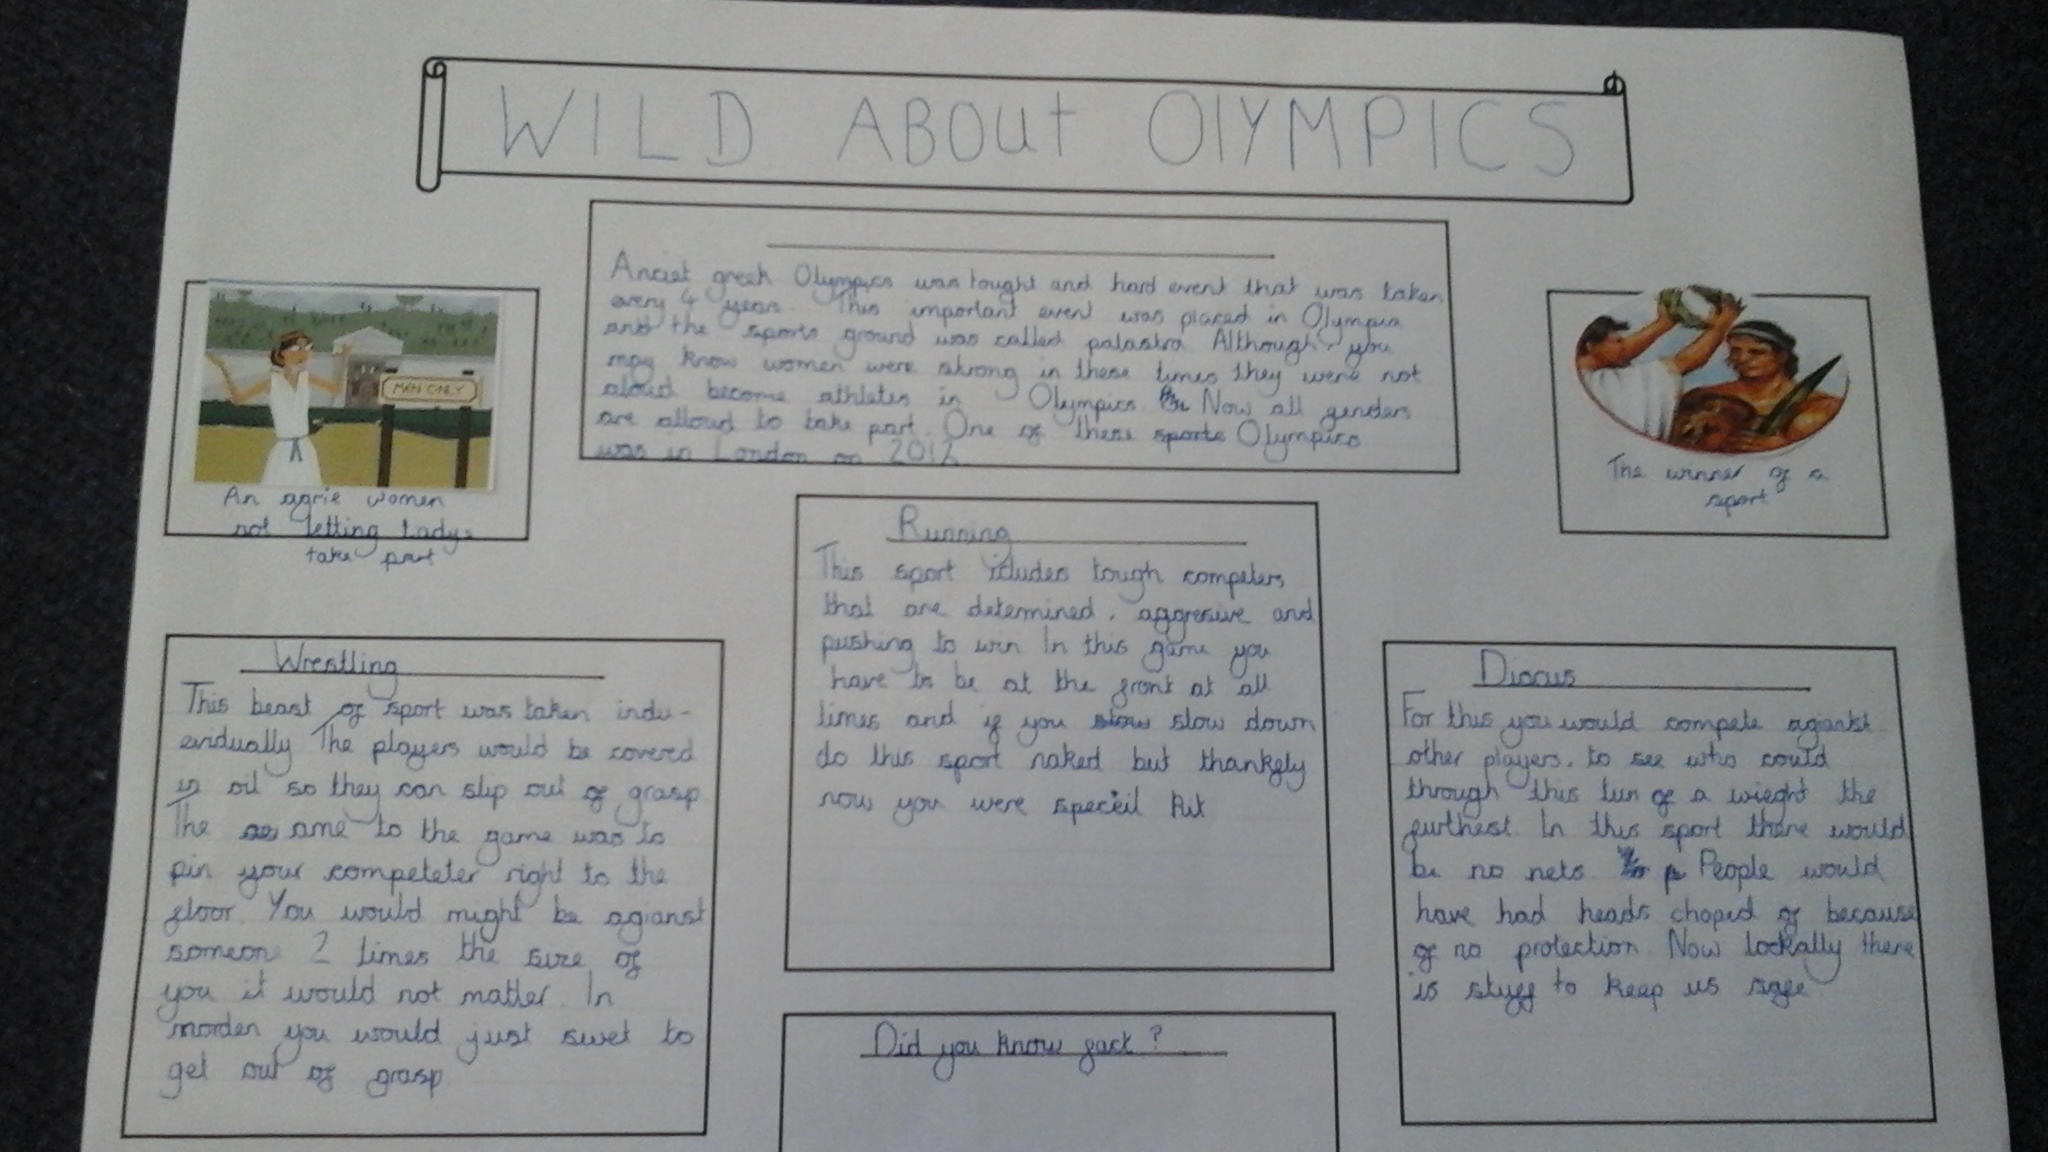 WILD ABOut OlYMPICS
Anciet greek Olympics was tought and hard event that was taken
every 4 years. This important event was placed in Olympia
and the sports ground was called palastra. Although you
may know women were strong in these times they were not
aloud become athletes in Olympics. Now all genders
are alloud to take part. One of these sports Olympics
was in London on 2012.
MEN ONLY
An agrie women
not letting ladys
take part
The winner of a
sport
Running
This sport icludes tough competers
that are determined, aggresive and
pushing to win In this game you
have to be at the front at all
times and if you slow slow down
do this sport naked but thankfely
now you were speceil kit
Wrestling
This beast of sport was taken indu-
evidually The players would be covered
in oil so they can slip out of grasp
The ame to the game was to
pin your competeter right to the
floor. You would might be agianst
someon 2 times the size of
you it would not matter. In
morden you would just swet to
get out of grasp
Discus
For this you would compete agianst
other players. to see who could
through this tun of a wieght the
furthest. In this sport there would
be no nets. People would
have had heads choped of because
of no protection. Now lockally there
is stuff to keep us safe
Did you know fact?